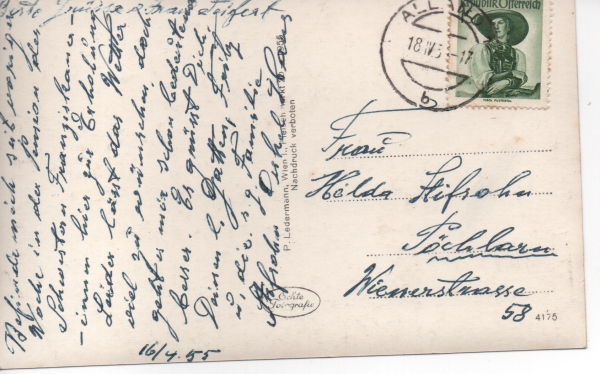 Beste Grüsse
Befinde mich seit voriger
Woche in der Pension der
Schwestern Franziskaner-
-innen hier zur Erholung
Leider lässt das Wetter
viel zu wünschen doch
geht es mir schon bedeutend
besser. Es grüsst Dich,
Deinen l. Gatten, Fritz
u. die g. Familie
16/4.55
P. Ledermann, Wien I.,
Nachdruck verboten
Echte
Fotografie
ALLAND
18.IV.5
17
b
Republik Österreich
Frau
Hilda Stifsohn
Pöchlarn
Wienerstrasse
58
4175